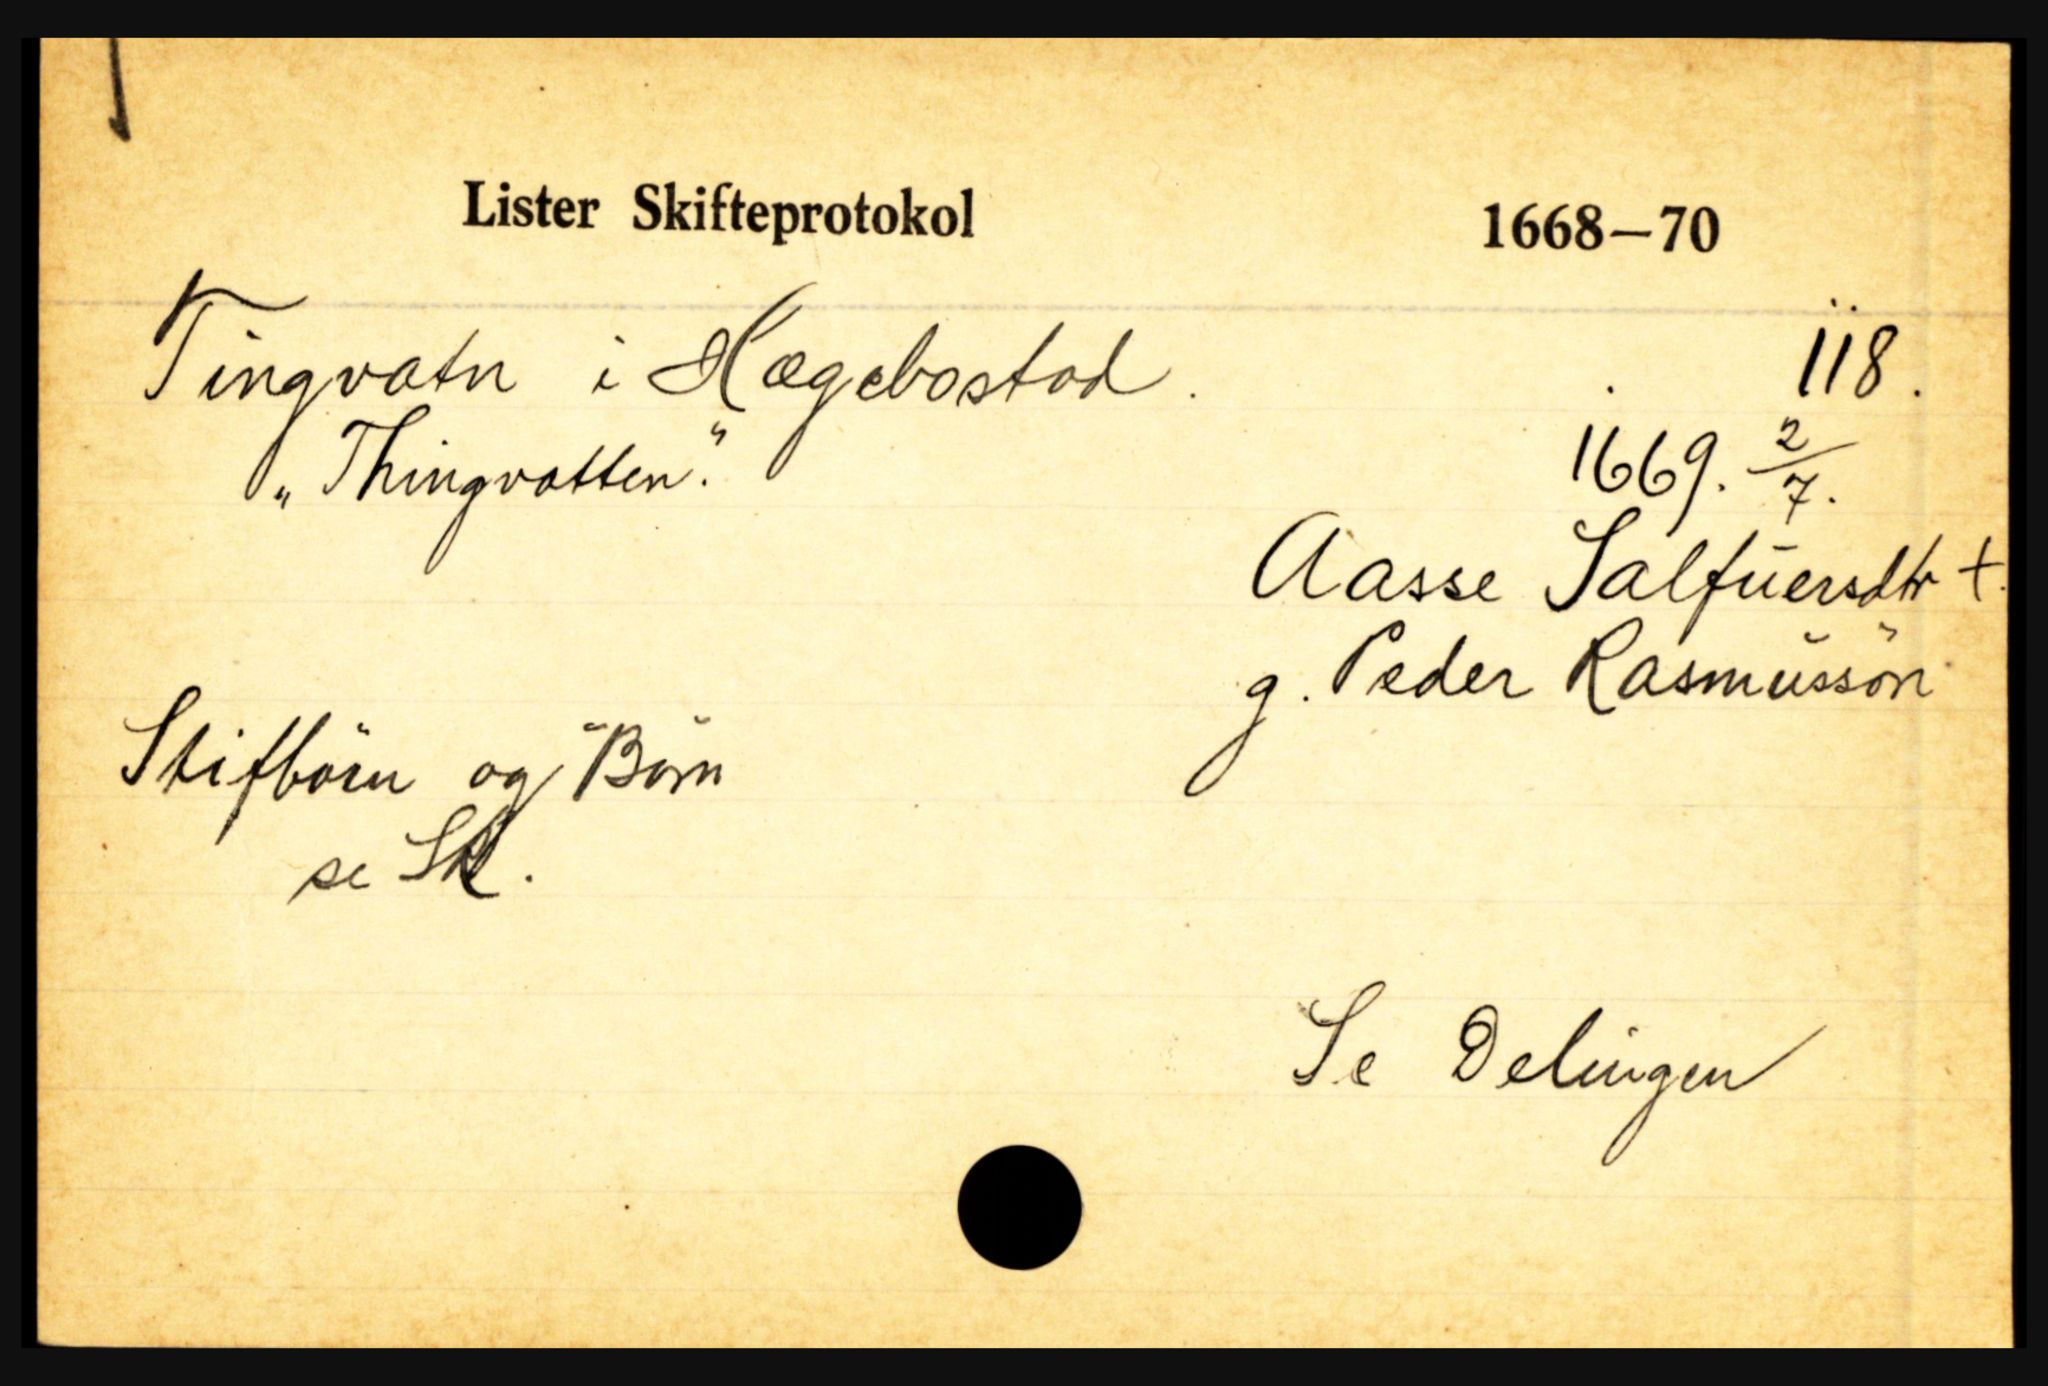 Lister Skifteprotokol 1668—70
Tingvatn i Hægebostad. 118.
„Thingvatten." 1669. 2/7.
Aasse Salfuersdtr +.
g. Peder Rasmussön
Stifbörn og Börn
se Sk.
Se Delingen